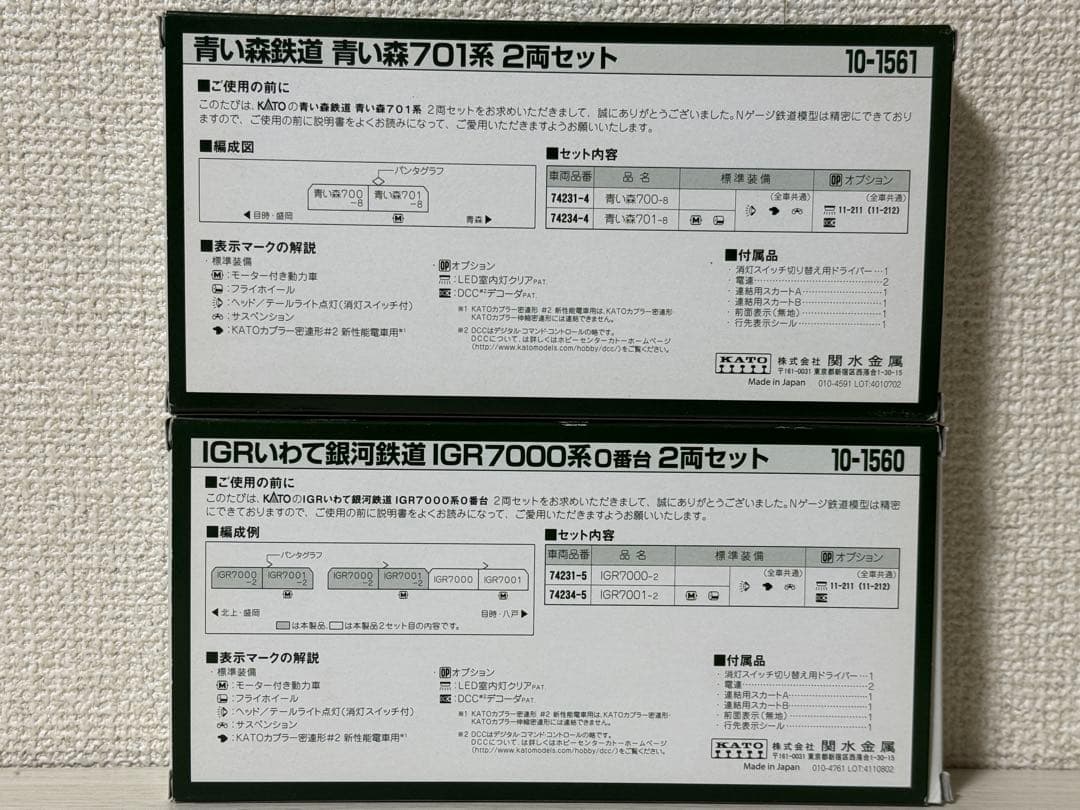 青い森鉄道 青い森701系 2両セット 10-1561
■ご使用の前に
このたびは、KATOの青い森鉄道 青い森701系 2両セットをお求めいただきまして、誠にありがとうございました。Nゲージ鉄道模型は精密にできており
ますので、ご使用の前に説明書をよくお読みになって、ご愛用いただきますようお願いいたします。
■編成図
パンタグラフ
青い森700-8 青い森701-8
M
◀目時・盛岡 青森▶
■セット内容
車両品番 品名 標準装備 OP オプション
74231-4 青い森700-8 (全車共通) (全車共通)
11-211 (11-212)
74234-4 青い森701-8 M
■表示マークの解説
・標準装備
M：モーター付き動力車
：フライホイール
：ヘッド/テールライト点灯(消灯スイッチ付)
：サスペンション
：KATOカプラー密連形#2 新性能電車用※1
・OPオプション
：LED室内灯クリアPAT.
：DCC※2デコーダPAT.
※1 KATOカプラー密連形 #2 新性能電車用は、KATOカプラー密連形・
KATOカプラー伸縮密連形には連結できません。
※2 DCCはデジタル・コマンド・コントロールの略です。
DCCについて、は詳しくはホビーセンターカトーホームページ
(http://www.katomodels.com/hobby/dcc/)をご覧ください。
■付属品
・消灯スイッチ切り替え用ドライバー…1
・電連…2
・連結用スカートA…1
・連結用スカートB…1
・前面表示(無地)…1
・行先表示シール…1
KATO 株式会社 関水金属
〒161-0031 東京都新宿区西落合1-30-15
Made in Japan 010-4591 LOT:4010702
IGRいわて銀河鉄道 IGR7000系0番台 2両セット 10-1560
■ご使用の前に
このたびは、KATOのIGRいわて銀河鉄道 IGR7000系0番台 2両セットをお求めいただきまして、誠にありがとうございました。Nゲージ鉄道模型は精密
にできておりますので、ご使用の前に説明書をよくお読みになって、ご愛用いただきますようお願いいたします。
■編成例
パンタグラフ
IGR7000-2 IGR7001-2 IGR7000-2 IGR7001-2 IGR7000 IGR7001
M M M
◀北上・盛岡 目時・八戸▶
は本製品、は本製品2セット目の内容です。
■セット内容
車両品番 品名 標準装備 OP オプション
74231-5 IGR7000-2 (全車共通) (全車共通)
11-211 (11-212)
74234-5 IGR7001-2 M
■表示マークの解説
・標準装備
M：モーター付き動力車
：フライホイール
：ヘッド/テールライト点灯(消灯スイッチ付)
：サスペンション
：KATOカプラー密連形#2 新性能電車用※1
・OPオプション
：LED室内灯クリアPAT.
：DCC※2デコーダPAT.
※1 KATOカプラー密連形 #2 新性能電車用は、KATOカプラー密連形・
KATOカプラー伸縮密連形には連結できません。
※2 DCCはデジタル・コマンド・コントロールの略です。
DCCについて、は詳しくはホビーセンターカトーホームページ
(http://www.katomodels.com/hobby/dcc/)をご覧ください。
■付属品
・消灯スイッチ切り替え用ドライバー…1
・電連…2
・連結用スカートA…1
・連結用スカートB…1
・前面表示(無地)…1
・行先表示シール…1
KATO 株式会社 関水金属
〒161-0031 東京都新宿区西落合1-30-15
Made in Japan 010-4761 LOT:4110802